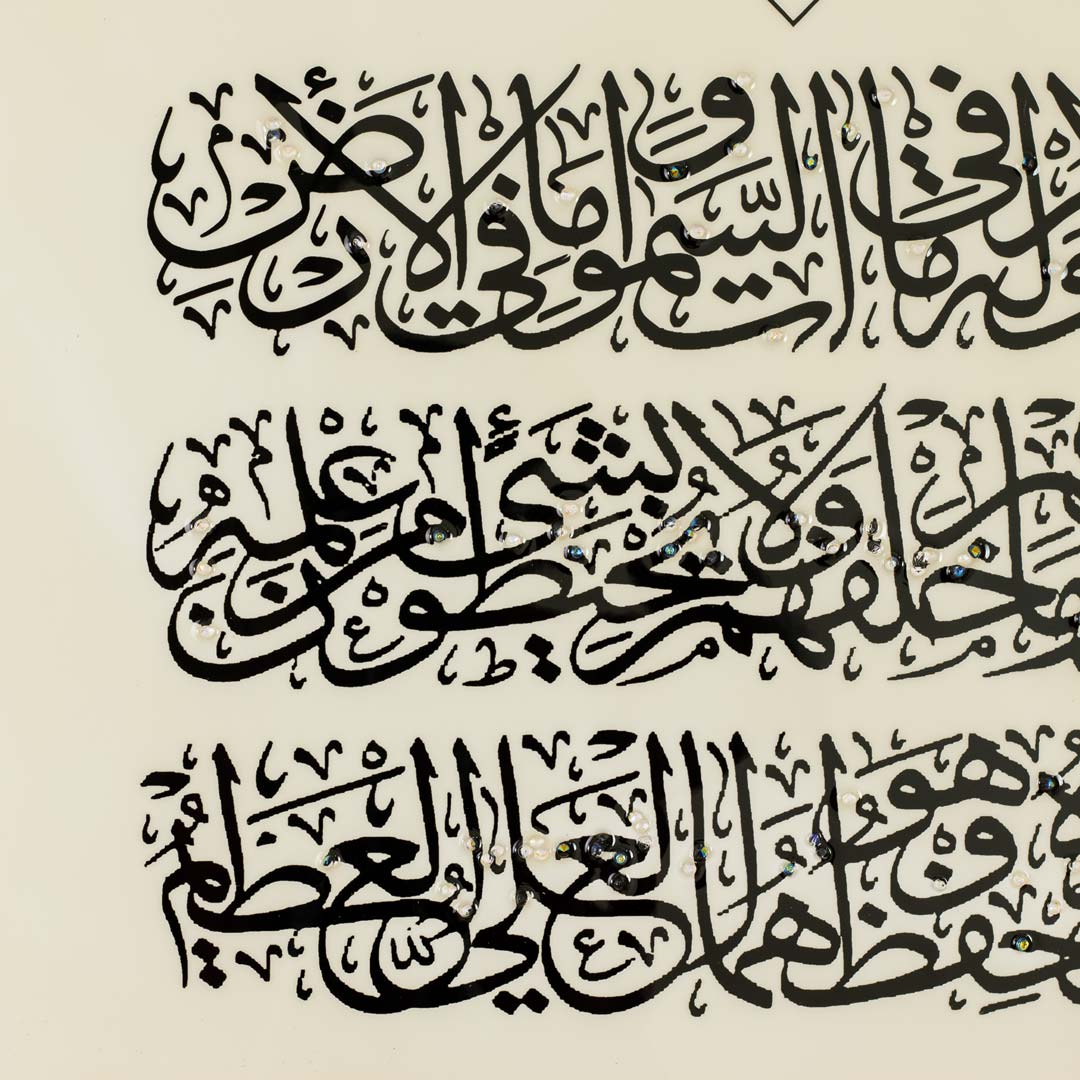 له ما في السموات وما في الأرض
خلفهم ولا يحيطون بشيء من علمه
حفظهما وهو العلي العظيم